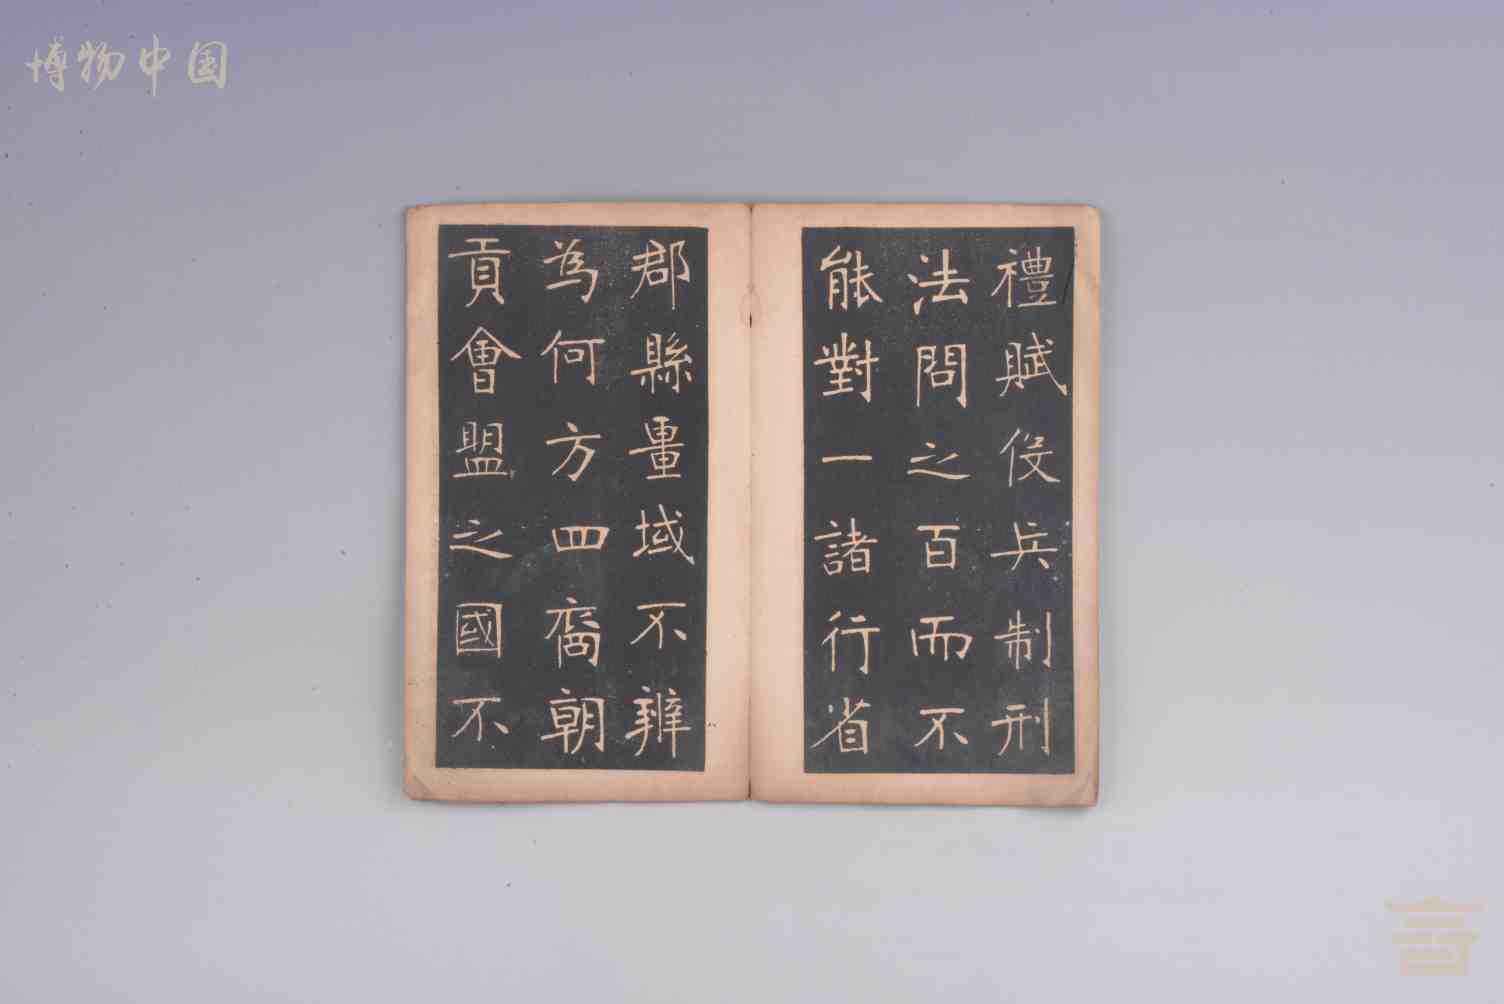 博物中国
禮賦役兵制刑
法問之百而不
能對一諸行省
郡縣畺域不辨
為何方四裔朝
貢會盟之國不